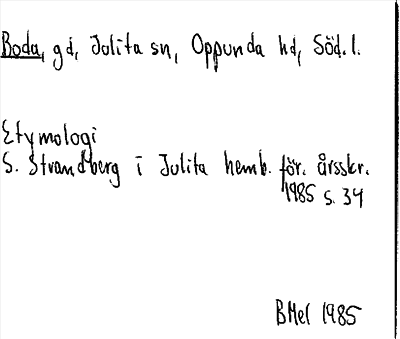 Boda, gd, Julita sn, Oppunda hd, Söd.l.
Etymologi
S. Strandberg i Julita hemb. för. årsskr.
1985 s. 34
BMel 1985